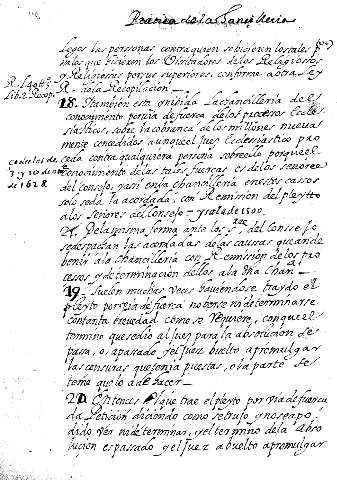 Practica de la Chancilleria
legos las personas contra quien se hicieron los tales pro
los que hicieron los Visitadores de los Religiossos
y Religiosas por sus superiores conforme a otra Ley
R. de la Recopilacion
Lib. 2 Recop.
18. Ytambien está la Chancilleria del
conocimiento por via de fuerça de los processos Ecle
siasticos, sobre la cobrança de los millones nueva
mente concedidos aunque el Juez Ecclesiastico pro
ceda contra qualquiera persona sobre ello porque el
conocimiento de las tales fuerças es de los señores
del consejo, y asi en la Chancilleria en estos cassos
solo se da la acordada; con Remission del pleyto
a los Señores del Consejo
cedulas de
de 1628
De la misma forma ante los del Consejo
se despachan las acordadas de las causas que an de
benir a la Chancilleria con Remission de los pro
cesos y determinacion dellos a la dha Chan.
19. Suelen muchas veces haviendose traydo el
pleyto por via de fuerça no berse ni determinarse
con tanta brevedad como se requiere, con que el
termino que se dio al Juez para la absolucion se
pasa, o a passado y el Juez buelto a promulgar
las censuras que tenia puestas, o la parte se
teme que lo a de hacer
20 Entonces el que trae el pleyto por via de fuerça
da Peticion diciendo como se trujo y no se a po
dido ver ni determinar, y el termino de la Abso
lucion es passado y el Juez a buelto a promulgar